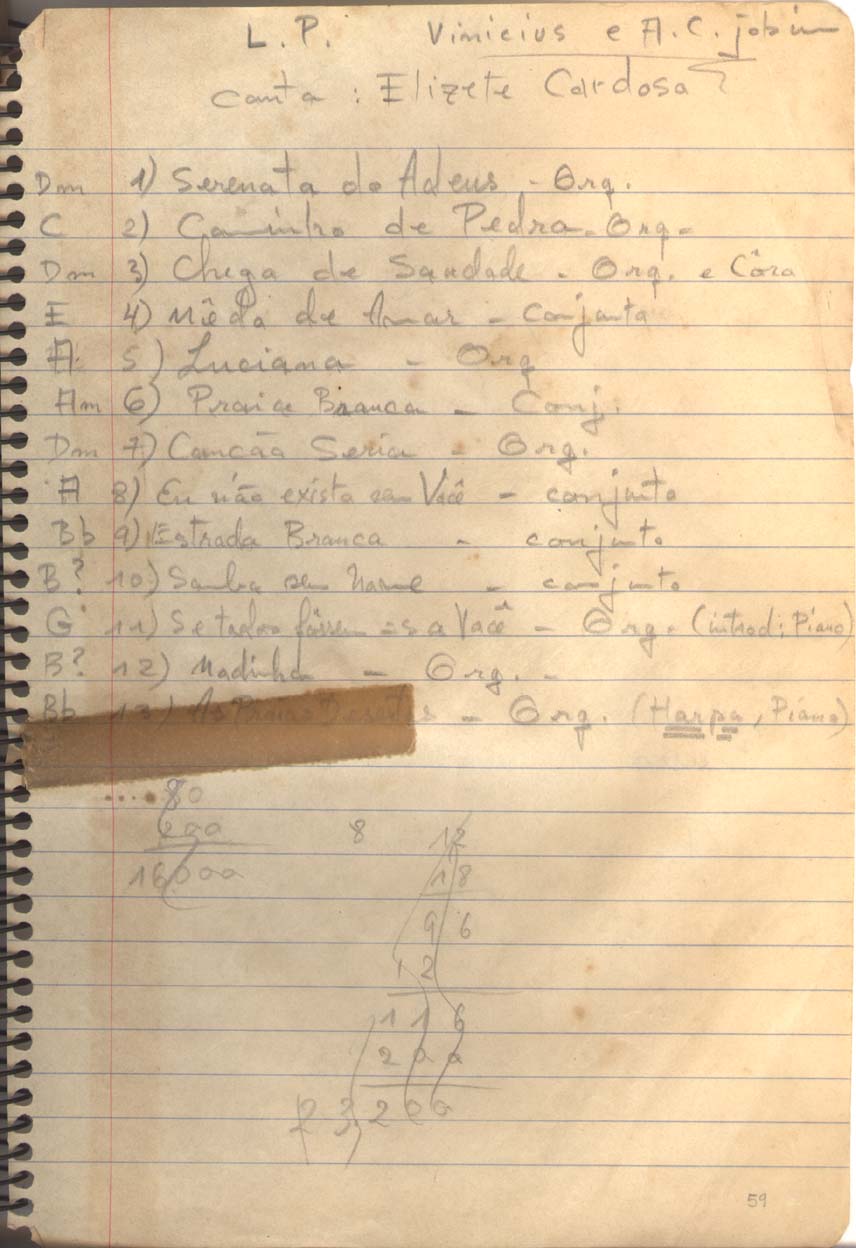 L. P. Vinicius e A. C. jobim
canta : Elizete Cardosa
Dm 1) Serenata do Adeus - Orq.
C 2) Caminho de Pedra - Orq.
Dm 3) Chega de Saudade - Orq. e Côro
E 4) Mêda de Amar - conjunto
A 5) Luciana - Orq
Am 6) Praia Branca - Conj.
Dm 7) Cancão Seria - Orq.
A 8) Eu não exista sem Você - conjunto
Bb 9) Estrada Branca - conjunto
B? 10) Samba sem Nome - conjunto
G 11) Se todos fôssem = s a Você - Orq. (introd: Piano)
B? 12) Modinha - Orq. -
Bb 13) As Praias Desertas - Orq. (Harpa, Piano)
.... 80
200
16000
8 12
18
96
12
116
200
23200
59